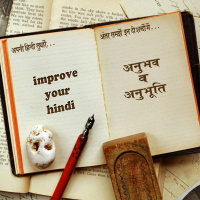 अपनी हिन्दी सुधारें...
improve
your
hindi
अंतर समझें इन शब्दों में...
अनुभव
व
अनुभूति